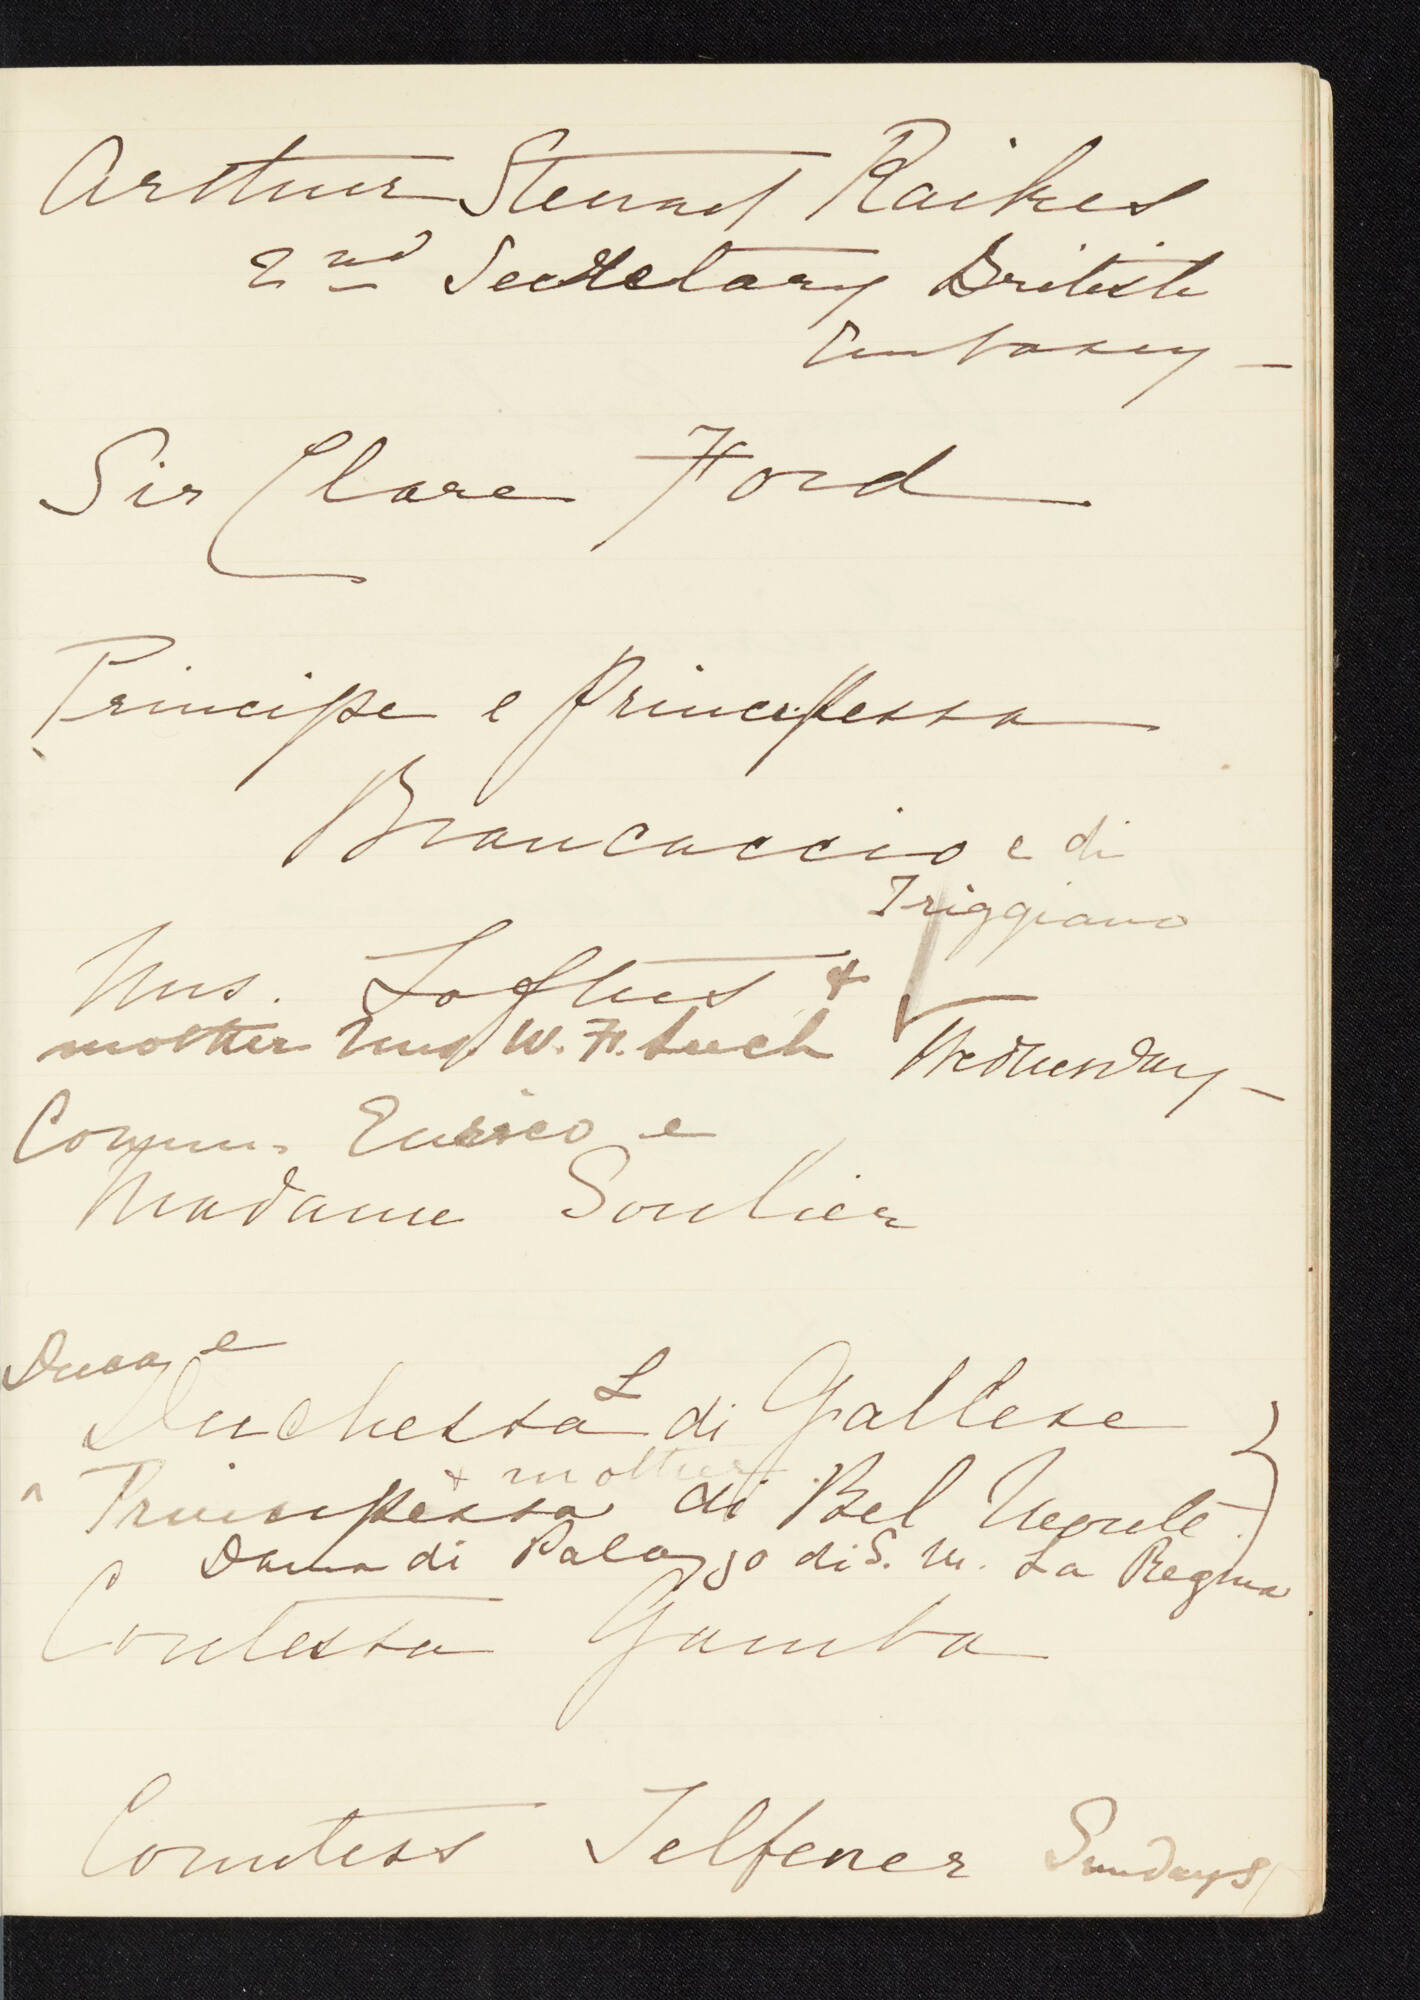 Arthur Steuart Raikes
2nd Secretary British
Embassy —
Sir Clare Ford
Principe e Principessa
Brancaccio e di
Triggiano
Mrs. Loftus +
mother Mrs. W. H. Wednesday —
Comm. Enrico e
Madame Soulier
Duca e
Duchessa L di Gallese
+ mother
Principessa di Bel Monte.
Dama di Palazzo di S. M. La Regina
Contessa Gamba
Comtess Telfener Sundays